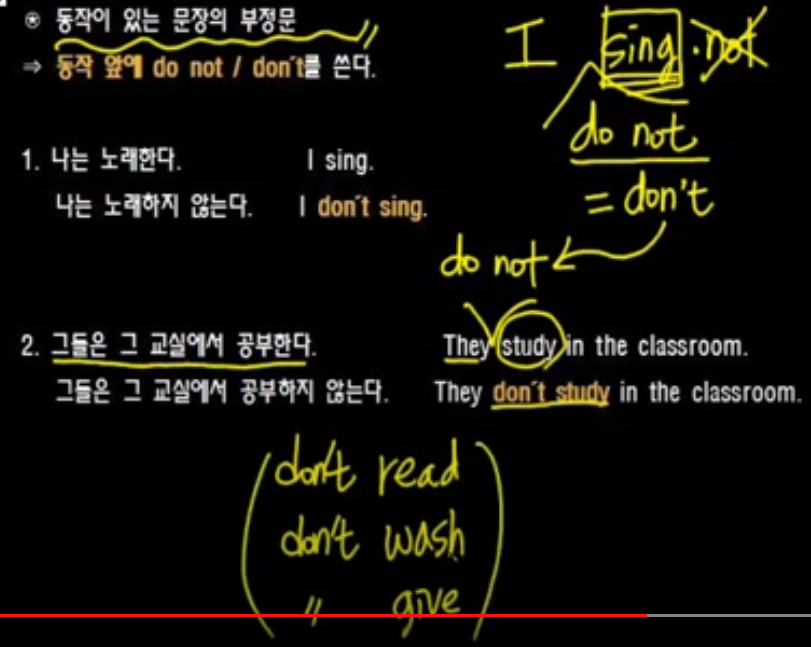 ⊛ 동작이 있는 문장의 부정문
⇒ 동작 앞에 do not / don't를 쓴다.
I sing. not
do not
= don't
1. 나는 노래한다. I sing.
나는 노래하지 않는다. I don't sing.
do not
2. 그들은 그 교실에서 공부한다. They study in the classroom.
그들은 그 교실에서 공부하지 않는다. They don't study in the classroom.
don't read
don't wash
〃 give